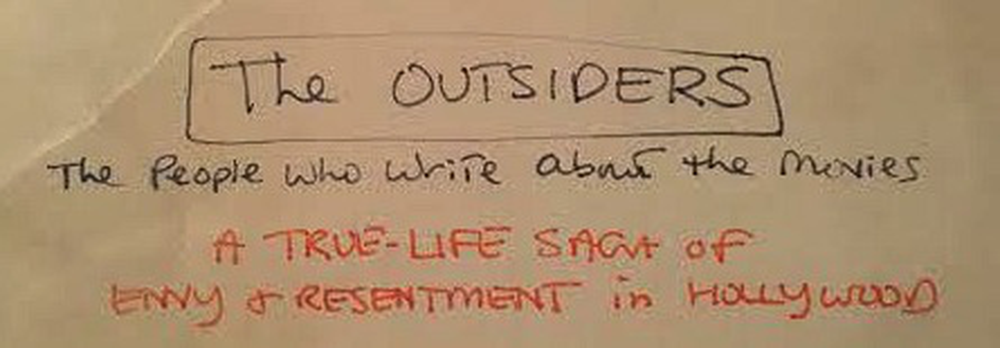 The OUTSIDERS
The People who write about the movies
A TRUE-LIFE SAGA OF
ENVY & RESENTMENT in HOLLYWOOD